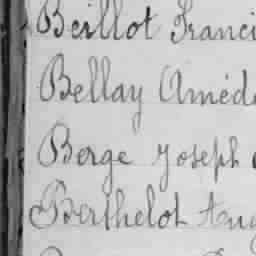 Beillot Franci
Bellay Améd
Berge Joseph
Berthelot Aug